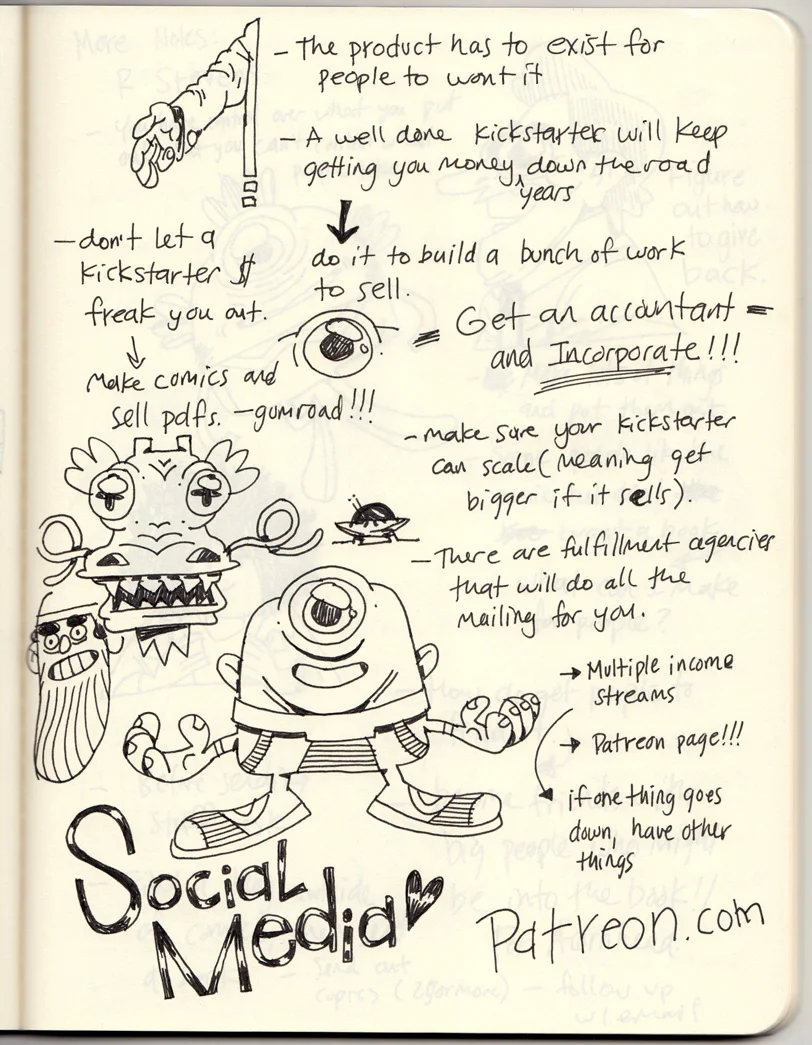 - The product has to exist for
people to want it
- A well done Kickstarter will keep
getting you money down the road
years
- don't let a
kickstarter $
freak you out.
do it to build a bunch of work
to sell.
= Get an accountant =
and Incorporate!!!
Make comics and
sell pdfs. - gumroad!!!
- make sure your kickstarter
can scale (meaning get
bigger if it sells).
- There are fulfillment agencies
that will do all the
mailing for you.
→ Multiple income
streams
→ Patreon page!!!
if one thing goes
down, have other
things
Social
Media
Patreon.com